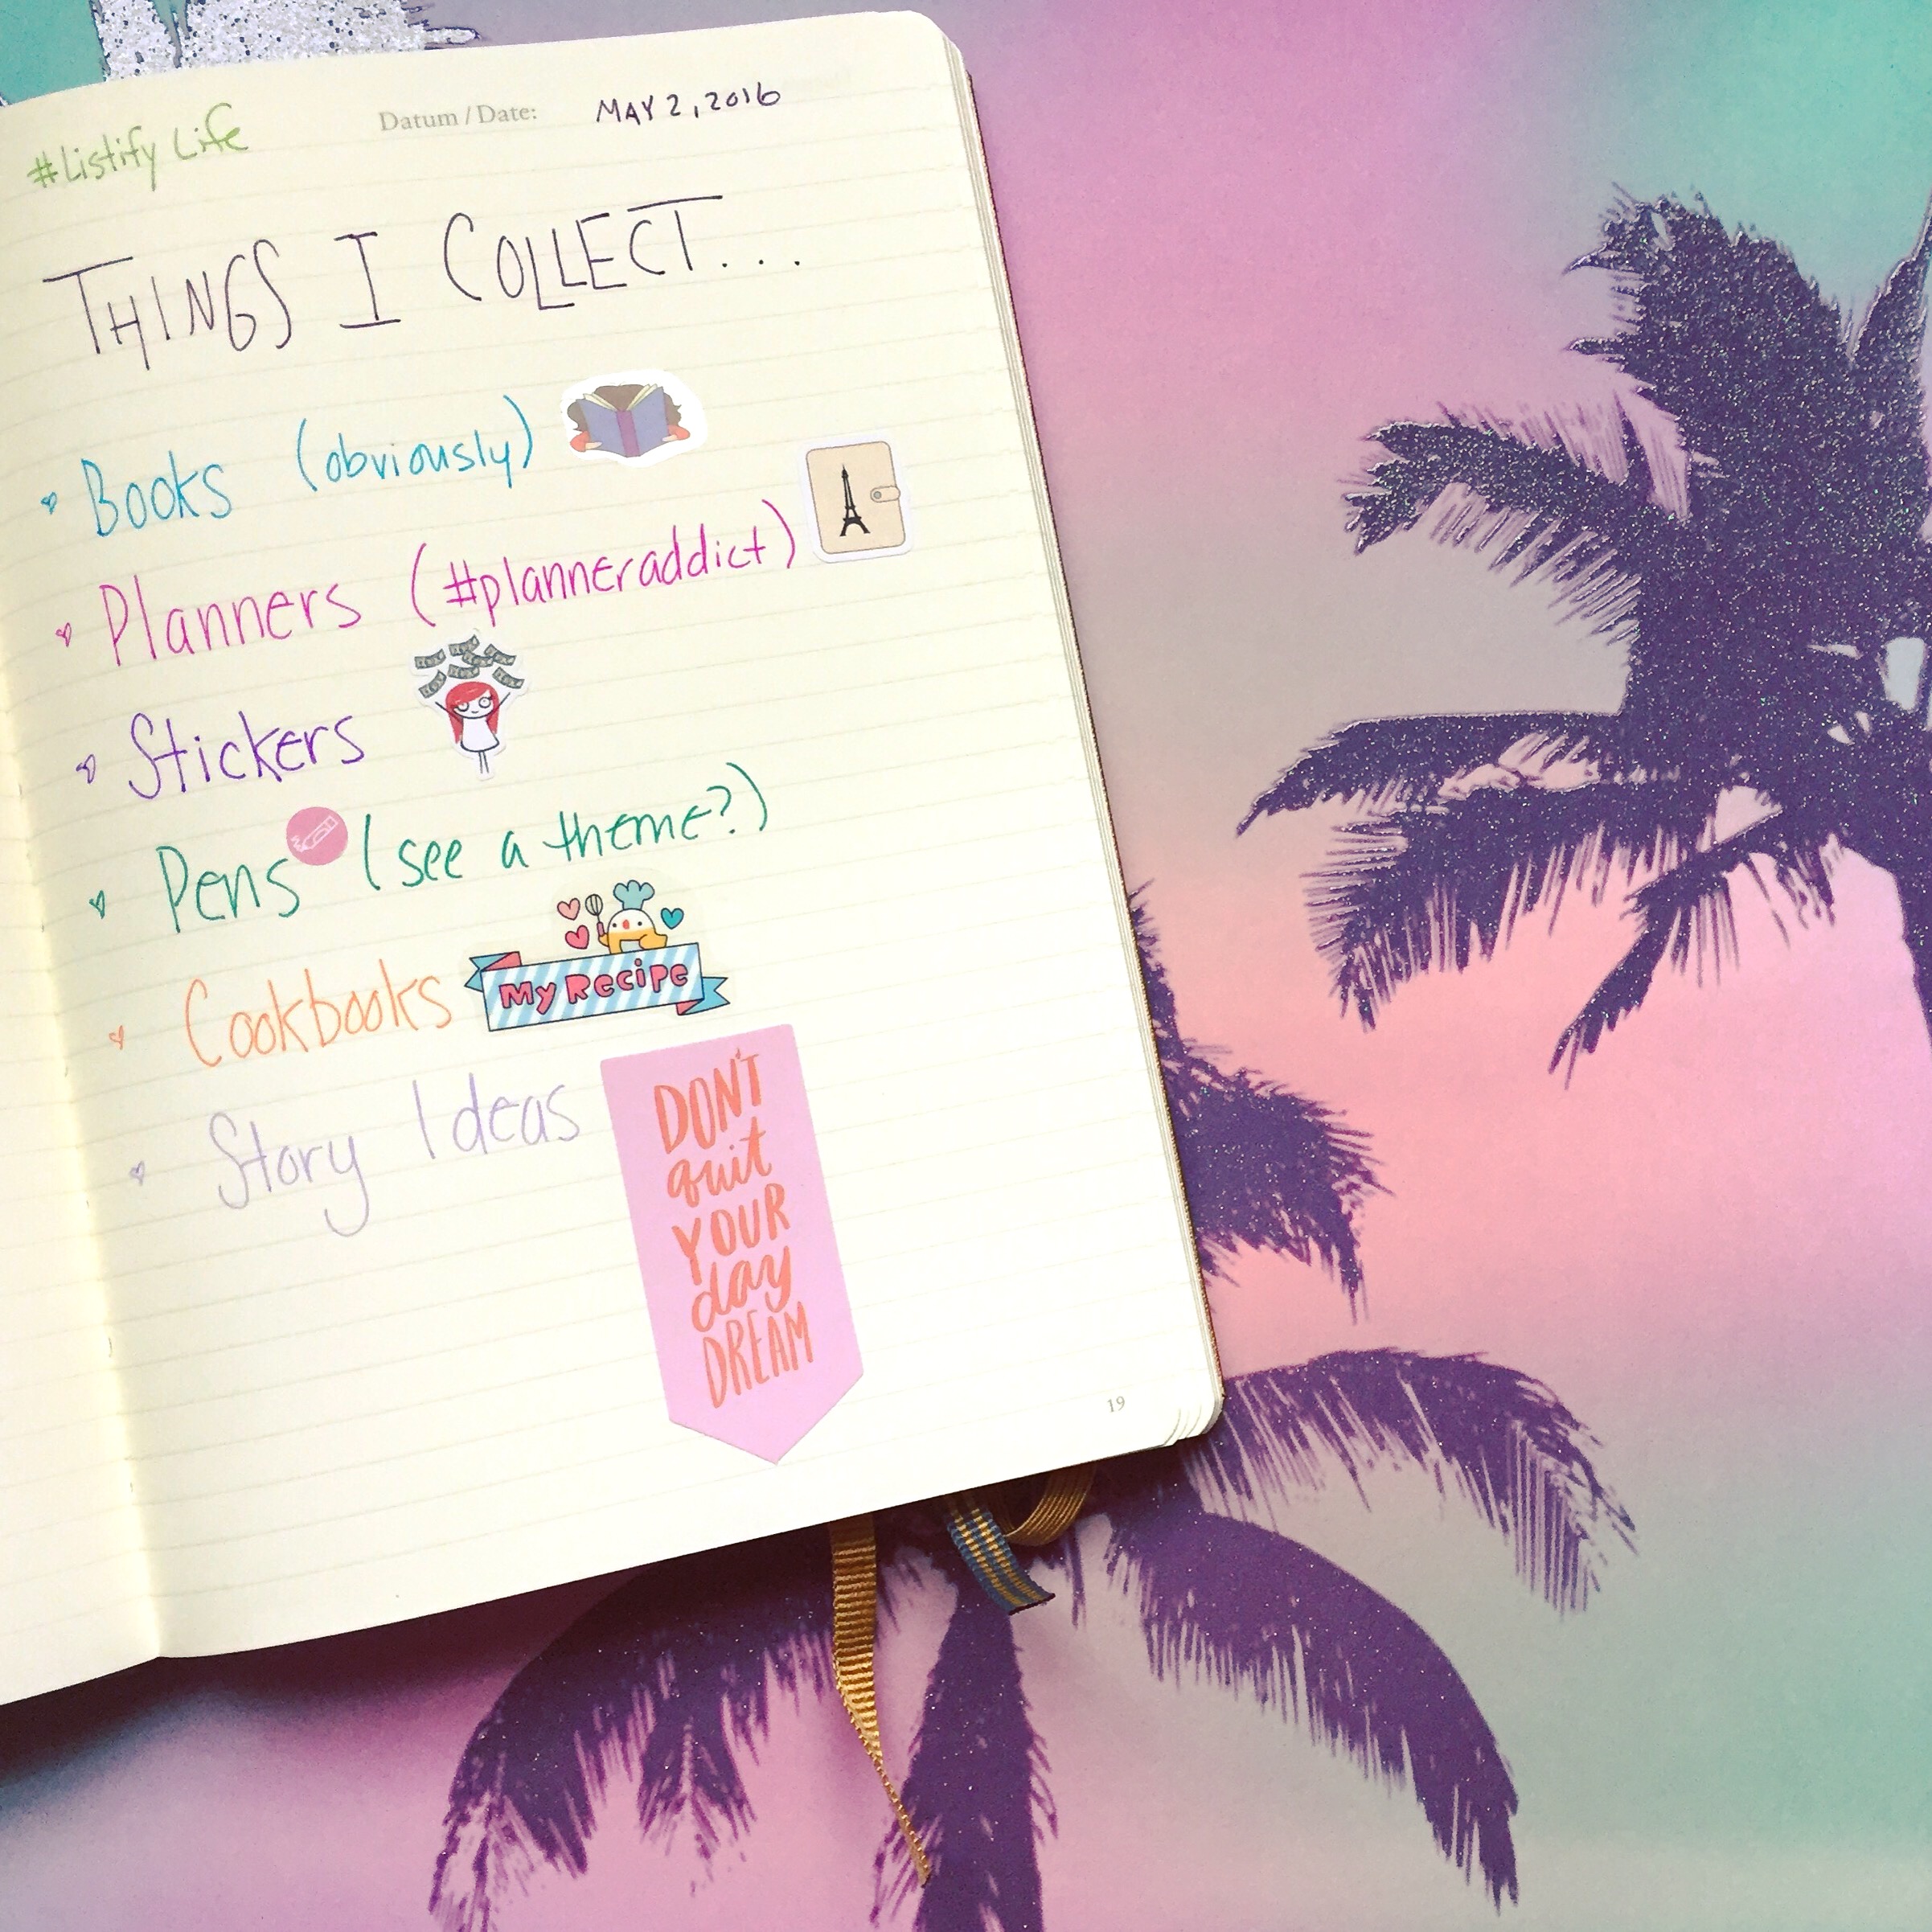 #Listify Life
Datum / Date: MAY 2, 2016
THINGS I COLLECT...
Books (obviously)
Planners (#planneraddict)
Stickers
Pens (see a theme?)
Cookbooks
My Recipe
Story Ideas
DON'T
quit
YOUR
day
DREAM
19